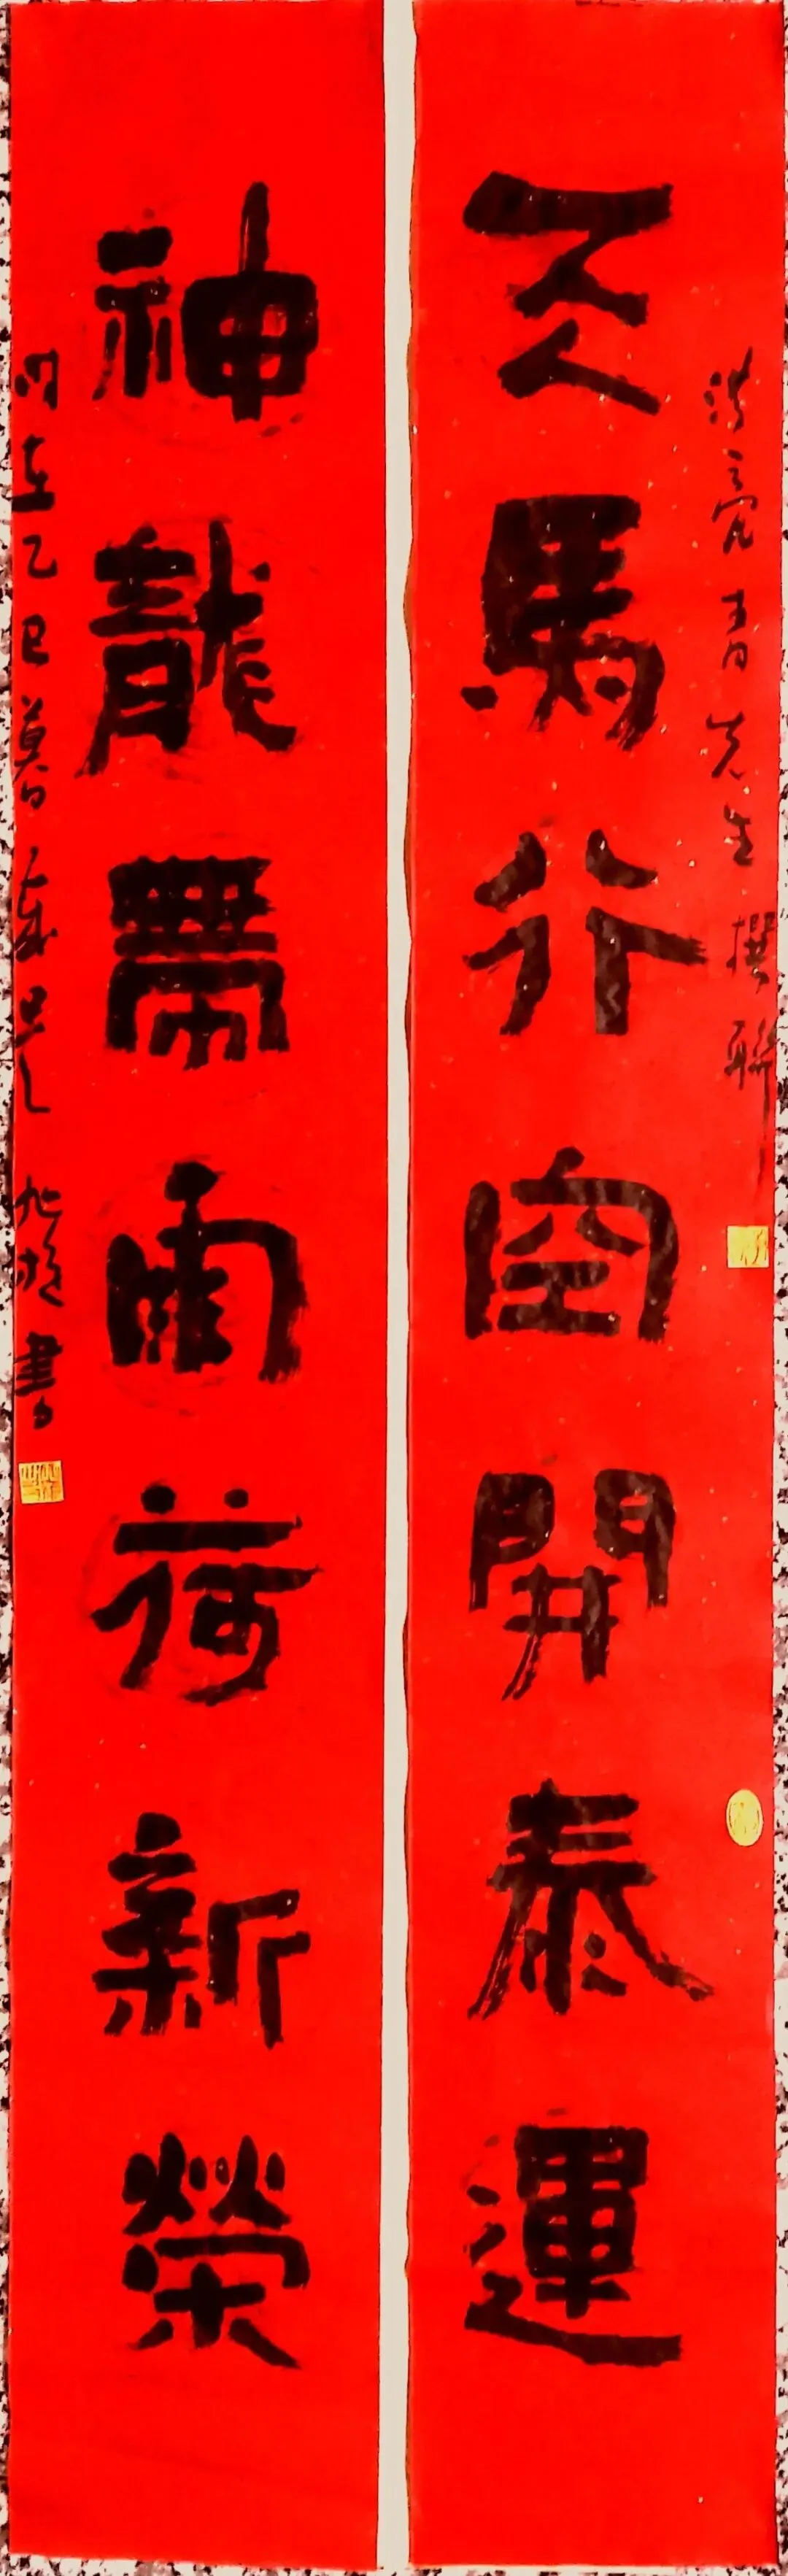 天馬行空開泰運
洪亮青先生撰聯
神龍帶雨荷新榮
時在乙巳暮歲 書